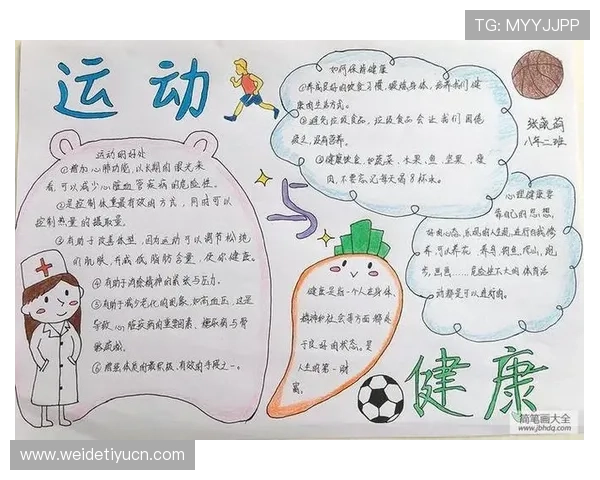 TG: MYYJJPP
运动
与
健康
运动的好处
①增加心肺功能,以长期的眼光来
看,可以减少心脏血管疾病的危险性。
②是控制体重最有效的方式,同时可以
控制热量的摄取量。
③有助于改善体型,因为运动可以调节松垮
的肌肤,并减低脂肪含量,使你健康。
④有助于消除精神的紧张与压力。
⑤有助于减少老化的因素,如高血压,这是
导致心脏疾病的重要因素、糖尿病与骨
骼疏松。
⑥增强体质的最积极,有效的手段之一。
如何保持健康
①养成良好的饮食习惯,锻炼身体,培养我们健
康的生活方式。
②避免垃圾食品,垃圾食品会让我们困倦
疲乏,没有营养。
③健康饮食,如蔬菜、水果、鱼、坚果、瘦
肉,不要忘记每天喝8杯水。
八年二班
心理健康要
靠自己的思想,
健康是指一个人在身体、
精神和社会等方面都处
于良好的状态。是
人生的第一财
富。
动都是可以选择的。
简笔画大全
www.jbhdq.com
www.weidetiyucn.com